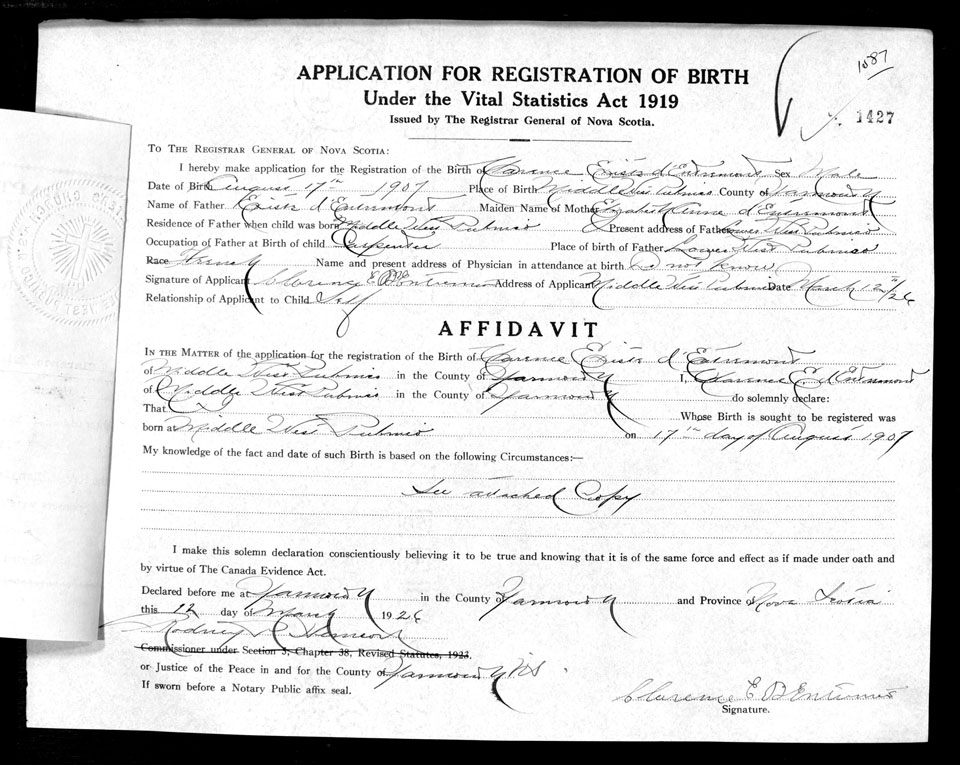 1087
APPLICATION FOR REGISTRATION OF BIRTH
Under the Vital Statistics Act 1919
Issued by The Registrar General of Nova Scotia.
1427
TO THE REGISTRAR GENERAL OF NOVA SCOTIA:
I hereby make application for the Registration of the Birth of Clarence d'Entremont Sex Male
Date of Birth August 17th 1907 Place of Birth Middle West Pubnico County of Yarmouth
Name of Father d'Entremont Maiden Name of Mother Elizabeth Anne d'Entremont
Residence of Father when child was born Middle West Pubnico Present address of Father Lower West Pubnico
Occupation of Father at Birth of child Carpenter Place of birth of Father Lower West Pubnico
Race French Name and present address of Physician in attendance at birth Do not know
Signature of Applicant Clarence E D'Entremont Address of Applicant Middle West Pubnico Date March 12th/26
Relationship of Applicant to Child Self
AFFIDAVIT
IN THE MATTER of the application for the registration of the Birth of Clarence d'Entremont
of Middle West Pubnico in the County of Yarmouth I, Clarence E. d'Entremont
of Middle West Pubnico in the County of Yarmouth do solemnly declare:
That Whose Birth is sought to be registered was
born at Middle West Pubnico on 17th day of August 1907
My knowledge of the fact and date of such Birth is based on the following Circumstances:—
See attached Copy
I make this solemn declaration conscientiously believing it to be true and knowing that it is of the same force and effect as if made under oath and
by virtue of The Canada Evidence Act.
Declared before me at Yarmouth in the County of Yarmouth and Province of Nova Scotia
this 12 day of March 1926
Rodney
Commissioner under Section 3, Chapter 38, Revised Statutes, 1923.
or Justice of the Peace in and for the County of Yarmouth NS
If sworn before a Notary Public affix seal.
Clarence E D'Entremont
Signature.